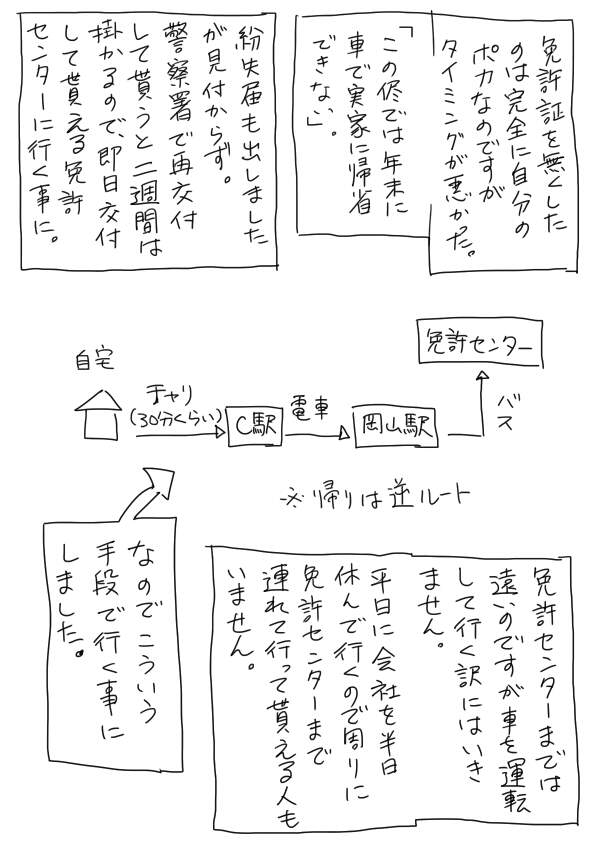 免許証を無くした
のは完全に自分の
ポカなのですが
タイミングが悪かった。
「この侭では年末に
車で実家に帰省
できない」。
紛失届も出しました
が見付からず。
警察署で再交付
して貰うと二週間は
掛かるので、即日交付
して貰える免許
センターに行く事に。
自宅
チャリ
(30分くらい)
C駅
電車
岡山駅
バス
免許センター
※帰りは逆ルート
免許センターまでは
遠いのですが車を運転
して行く訳にはいき
ません。
平日に会社を半日
休んで行くので周りに
免許センターまで
連れて行って貰える人も
いません。
なのでこういう
手段で行く事に
しました。